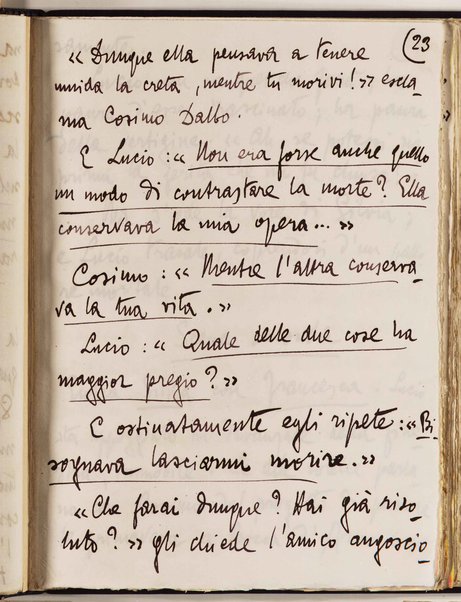 (23
« Dunque ella pensava a tenere
umida la creta, mentre tu morivi! » escla
ma Cosimo Dalbo.
E Lucio : « Non era forse anche quello
un modo di contrastare la morte? Ella
conservava la mia opera... »
Cosimo : « Mentre l'altra conserva
va la tua vita. »
Lucio : « Quale delle due cose ha
maggior pregio? »
E ostinatamente egli ripete : « Bi
sognava lasciarmi morire. »
« Che farai dunque? Hai già riso
luto? » gli chiede l'amico angoscio